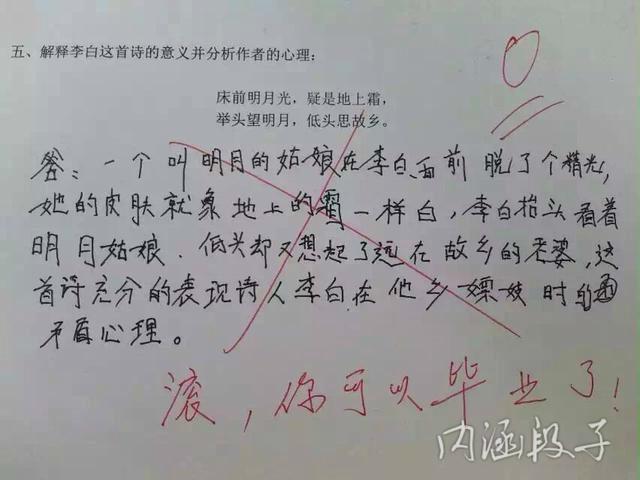 五、解释李白这首诗的意义并分析作者的心理:
床前明月光，疑是地上霜，
举头望明月，低头思故乡。
答：一个叫明月的姑娘在李白面前脱了个精光，
她的皮肤就象地上的霜一样白，李白抬头看着
明月姑娘．低头却又想起了远在故乡的老婆，这
首诗充分的表现诗人李白在他乡嫖妓时的
矛盾心理。
0
滚，你可以毕业了！
内涵段子